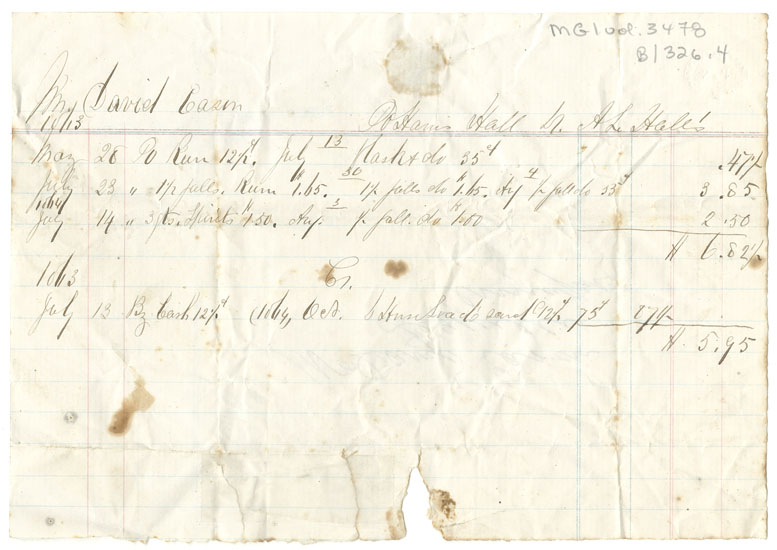 MG1 vol. 3478
B/326.4
Mr David Eason
1863
To Harris Hall Dr. A L Hall's
May 28 To Rum 12½ cts. July 13 flask & do 35 cts .47½
July 23 " 1½ galls. Rum " 1.65. 30 1½ galls do " 1.65. Aug 4 ½ gall do 55 cts 3.85
1864
July 14 " 3 pts. Spirits " 1.50. Aug. 3 ½ gall. do " 1.00 2.50
6.82½
1863 Cr.
July 13 By Cash 12½ cts (1864, Oct. 12½ 75 cts 87½
5.95